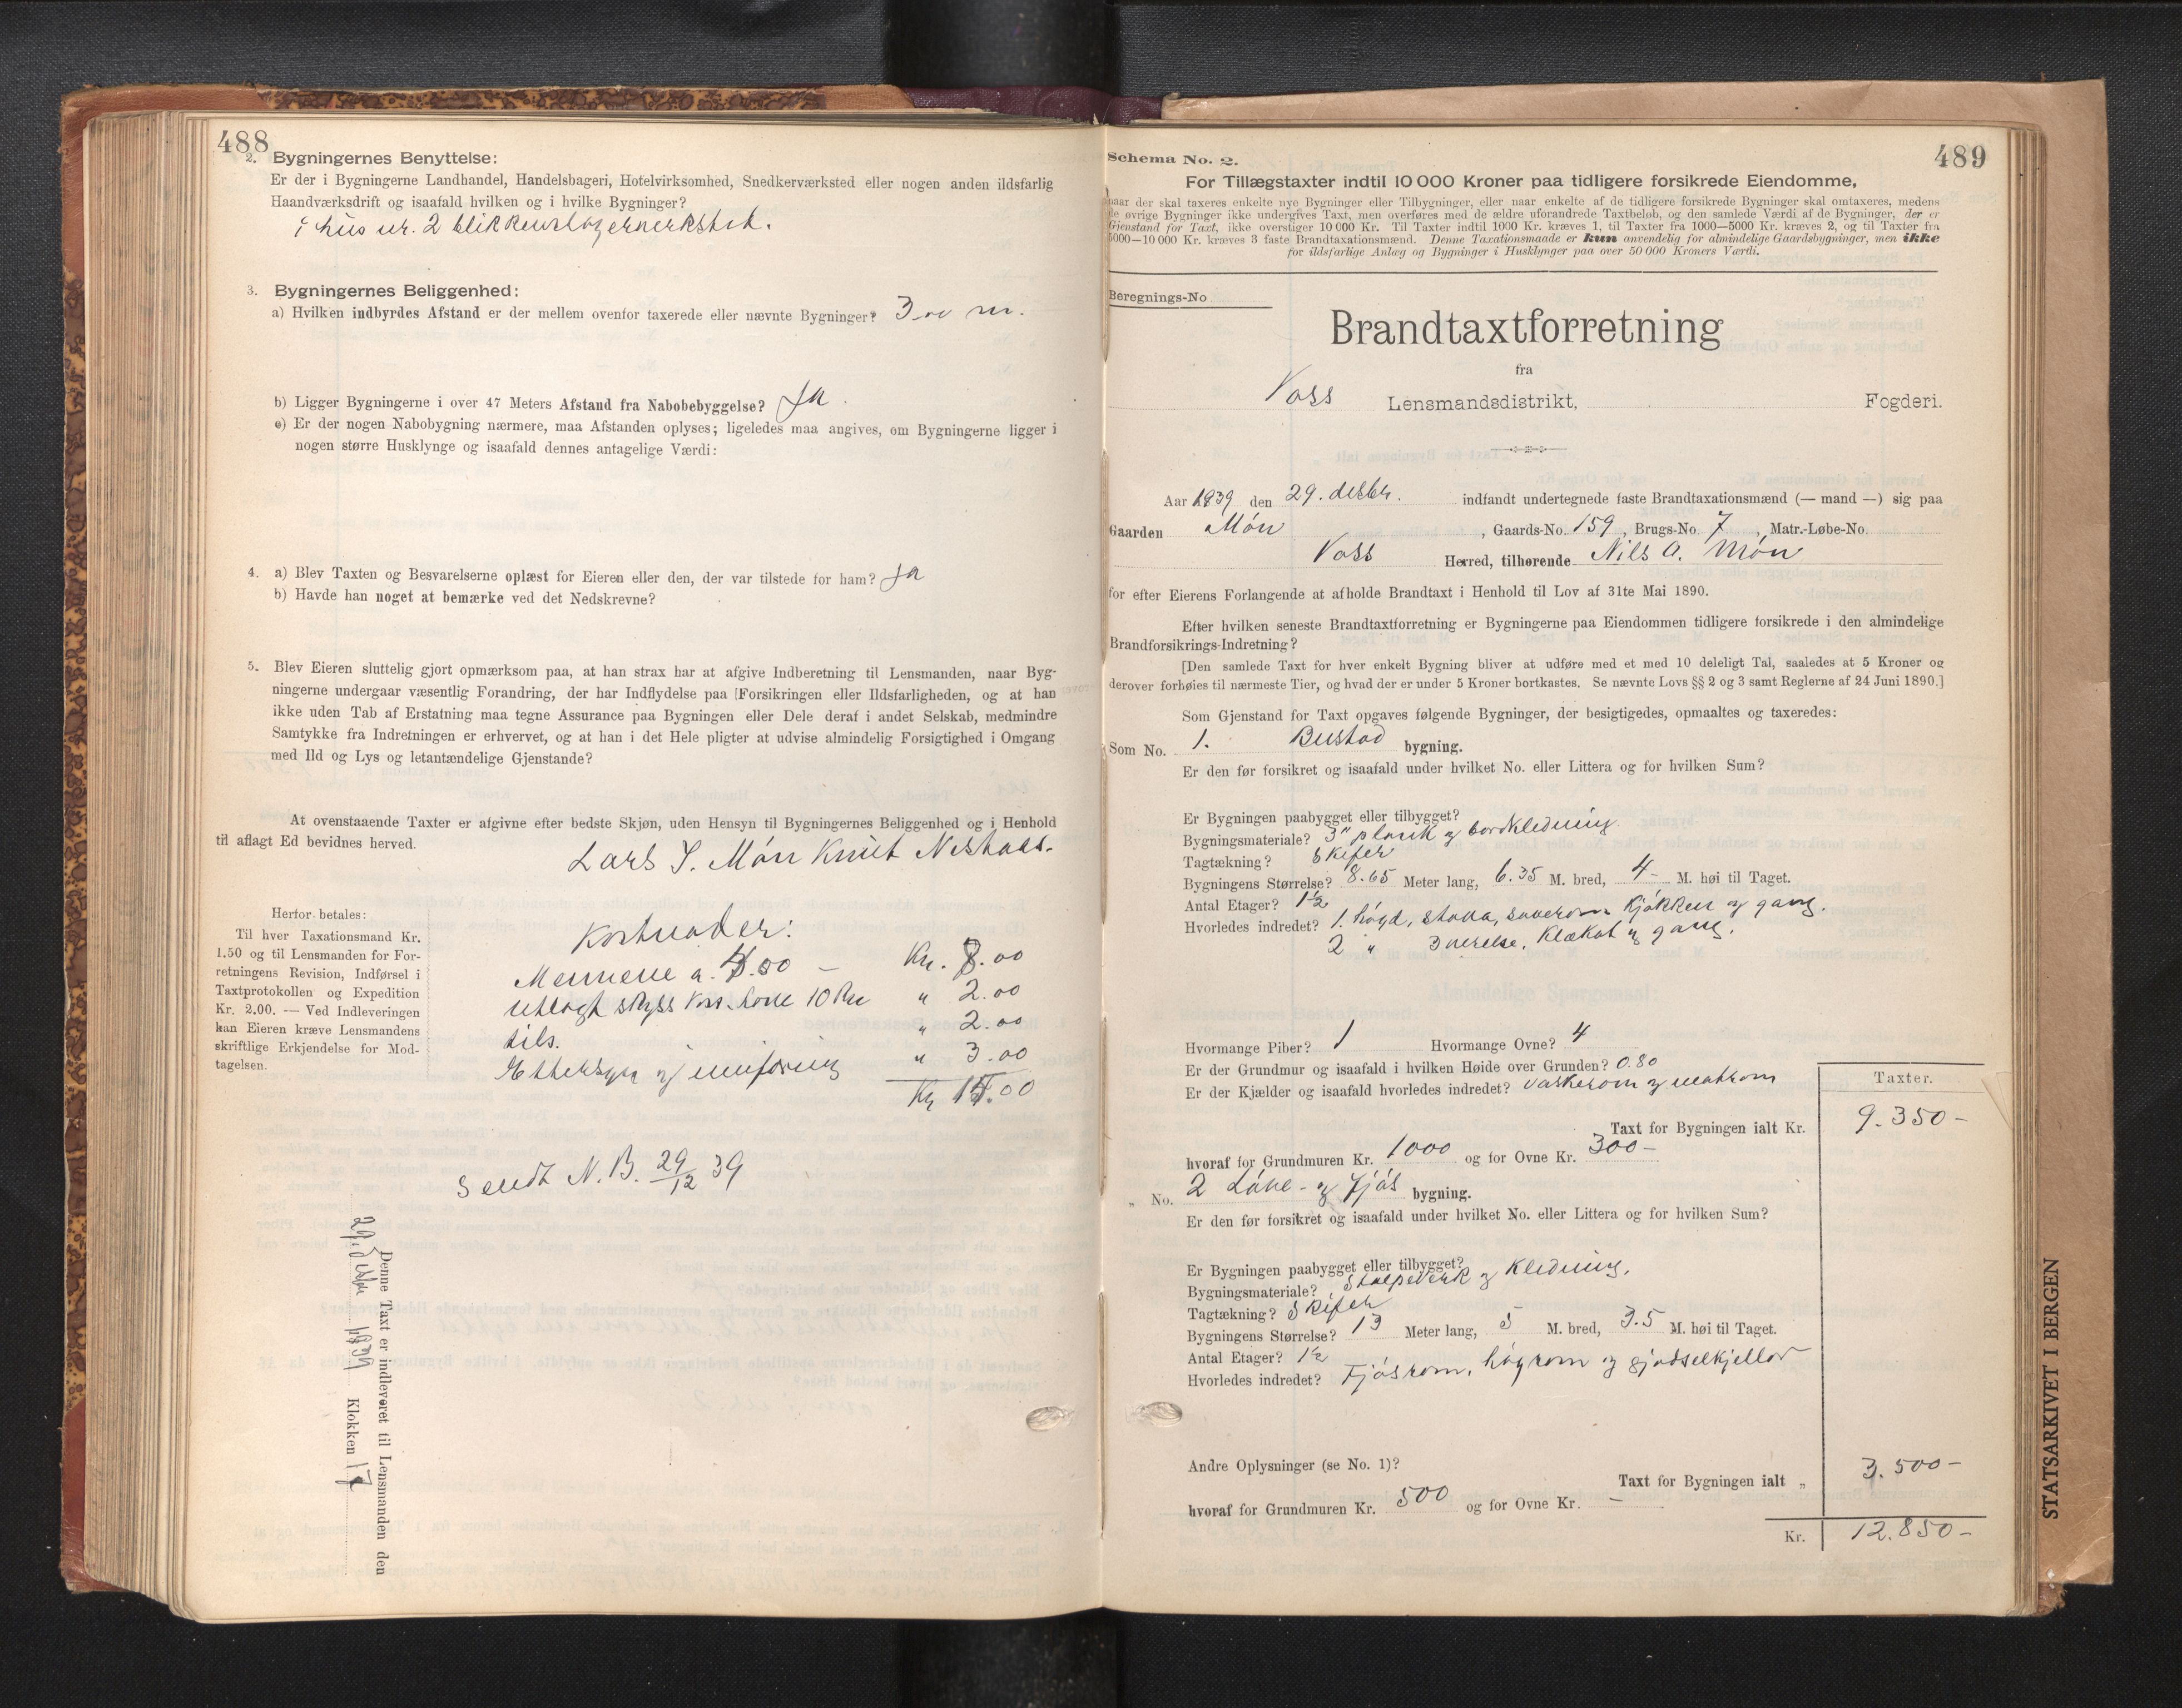 488
2. Bygningernes Benyttelse:
Er der i Bygningerne Landhandel, Handelsbageri, Hotelvirksomhed, Snedkerværksted eller nogen anden ildsfarlig
Haandværksdrift og isaafald hvilken og i hvilke Bygninger?
i hus nr. 2 blikkenslagerverksted.
3. Bygningernes Beliggenhed:
a) Hvilken indbyrdes Afstand er der mellem ovenfor taxerede eller nævnte Bygninger? 3.00 m.
b) Ligger Bygningerne i over 47 Meters Afstand fra Nabobebyggelse? Ja.
c) Er der nogen Nabobygning nærmere, maa Afstanden oplyses; ligeledes maa angives, om Bygningerne ligger i
nogen større Husklynge og isaafald dennes antagelige Værdi:
4. a) Blev Taxten og Besvarelserne oplæst for Eieren eller den, der var tilstede for ham? Ja
b) Havde han noget at bemærke ved det Nedskrevne?
5. Blev Eieren sluttelig gjort opmærksom paa, at han strax har at afgive Indberetning til Lensmanden, naar Byg-
ningerne undergaar væsentlig Forandring, der har Indflydelse paa Forsikringen eller Ildsfarligheden, og at han
ikke uden Tab af Erstatning maa tegne Assurance paa Bygningen eller Dele deraf i andet Selskab, medmindre
Samtykke fra Indretningen er erhvervet, og at han i det Hele pligter at udvise almindelig Forsigtighed i Omgang
med Ild og Lys og letantændelige Gjenstande?
At ovenstaaende Taxter er afgivne efter bedste Skjøn, uden Hensyn til Bygningernes Beliggenhed og i Henhold
til aflagt Ed bevidnes herved.
Lars S. Møn Knut Nestaas.
Herfor betales:
Til hver Taxationsmand Kr.
1.50 og til Lensmanden for For-
retningens Revision, Indførsel i
Taxtprotokollen og Expedition
Kr. 2.00. — Ved Indleveringen
kan Eieren kræve Lensmandens
skriftlige Erkjendelse for Mod-
tagelsen.
Kostnader:
Mennene a. 4.00 — Kr. 8.00
Utlagt skyss 10 " 2.00
tils. " 2.00
Ettersyn og innføring " 3.00
Kr 15.00
Sendt N. B. 29/12 39
Denne Taxt er indleveret til Lensmanden den
29. desbr 1939 Klokken 17
489
Schema No. 2.
For Tillægstaxter indtil 10 000 Kroner paa tidligere forsikrede Eiendomme,
naar der skal taxeres enkelte nye Bygninger eller Tilbygninger, eller naar enkelte af de tidligere forsikrede Bygninger skal omtaxeres, medens
de øvrige Bygninger ikke undergives Taxt, men overføres med de ældre uforandrede Taxtbeløb, og den samlede Værdi af de Bygninger, der er
Gjenstand for Taxt, ikke overstiger 10 000 Kr. Til Taxter indtil 1000 Kr. kræves 1, til Taxter fra 1000—5000 Kr. kræves 2, og til Taxter fra
5000—10 000 Kr. kræves 3 faste Brandtaxationsmænd. Denne Taxationsmaade er kun anvendelig for almindelige Gaardsbygninger, men ikke
for ildsfarlige Anlæg og Bygninger i Husklynger paa over 50 000 Kroners Værdi.
Beregnings-No
Brandtaxtforretning
fra
Voss Lensmandsdistrikt, Fogderi.
Aar 1939 den 29. desbr. indfandt undertegnede faste Brandtaxationsmænd (— mand —) sig paa
Gaarden Møn, Gaards-No. 159, Brugs-No 7, Matr.-Løbe-No.
Voss Herred, tilhørende Nils A. Møn
for efter Eierens Forlangende at afholde Brandtaxt i Henhold til Lov af 31te Mai 1890.
Efter hvilken seneste Brandtaxtforretning er Bygningerne paa Eiendommen tidligere forsikrede i den almindelige
Brandforsikrings-Indretning?
[Den samlede Taxt for hver enkelt Bygning bliver at udføre med et med 10 deleligt Tal, saaledes at 5 Kroner og
derover forhøies til nærmeste Tier, og hvad der er under 5 Kroner bortkastes. Se nævnte Lovs §§ 2 og 3 samt Reglerne af 24 Juni 1890.]
Som Gjenstand for Taxt opgaves følgende Bygninger, der besigtigedes, opmaaltes og taxeredes:
Som No. 1. Bustad bygning.
Er den før forsikret og isaafald under hvilket No. eller Littera og for hvilken Sum?
Er Bygningen paabygget eller tilbygget?
Bygningsmateriale? 3" plank og bordkledning.
Tagtækning? Skifer
Bygningens Størrelse? 8.65 Meter lang, 6.35 M. bred, 4- M. høi til Taget.
Antal Etager? 1½
Hvorledes indredet? 1. høgd, stova, soverom kjøkken og gang.
2 " 3 verelse, klækot og gang.
Hvormange Piber? 1 Hvormange Ovne? 4
Er der Grundmur og isaafald i hvilken Høide over Grunden? 0.80
Er der Kjælder og isaafald hvorledes indredet? vaskerom og matrom
Taxter.
Taxt for Bygningen ialt Kr. 9.350-
hvoraf for Grundmuren Kr. 1000 og for Ovne Kr. 300-
" No. 2 Løve- og fjøs bygning.
Er den før forsikret og isaafald under hvilket No. eller Littera og for hvilken Sum?
Er Bygningen paabygget eller tilbygget?
Bygningsmateriale? Stolpeverk og kledning.
Tagtækning? Skifer
Bygningens Størrelse? 13 Meter lang, 5 M. bred, 3.5 M. høi til Taget.
Antal Etager? 1½
Hvorledes indredet? Fjøsrom, høyrom og gjødselkjellar
Andre Oplysninger (se No. 1)?
Taxt for Bygningen ialt " 3.500-
hvoraf for Grundmuren Kr. 500 og for Ovne Kr. -
Kr. 12.850-
STATSARKIVET I BERGEN